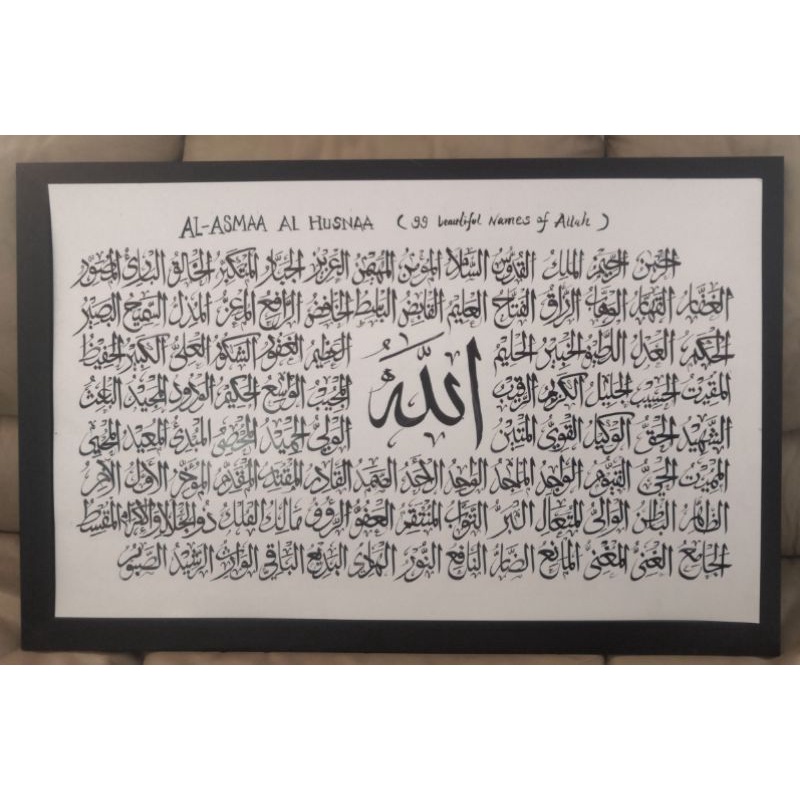 AL-ASMAA AL HUSNAA ( 99 beautiful Names of Allah )
الرحمن الرحيم الملك القدوس السلام المؤمن المهيمن العزيز الجبار المتكبر الخالق البارئ المصور
الغفار القهار الوهاب الرزاق الفتاح العليم القابض الباسط الخافض الرافع المعز المذل السميع البصير
الحكم العدل اللطيف الخبير الحليم العظيم الغفور الشكور العلي الكبير الحفيظ
المقيت الحسيب الجليل الكريم الرقيب المجيب الواسع الحكيم الودود المجيد الباعث
الله
الشهيد الحق الوكيل القوي المتين الولي الحميد المحصي المبدئ المعيد المحيي
المميت الحي القيوم الواجد الماجد الواحد الأحد الصمد القادر المقتدر المقدم المؤخر الأول الآخر
الظاهر الباطن الوالي المتعال البر التواب المنتقم العفو الرؤوف مالك الملك ذو الجلال والإكرام المقسط
الجامع الغني المغني المانع الضار النافع النور الهادي البديع الباقي الوارث الرشيد الصبور